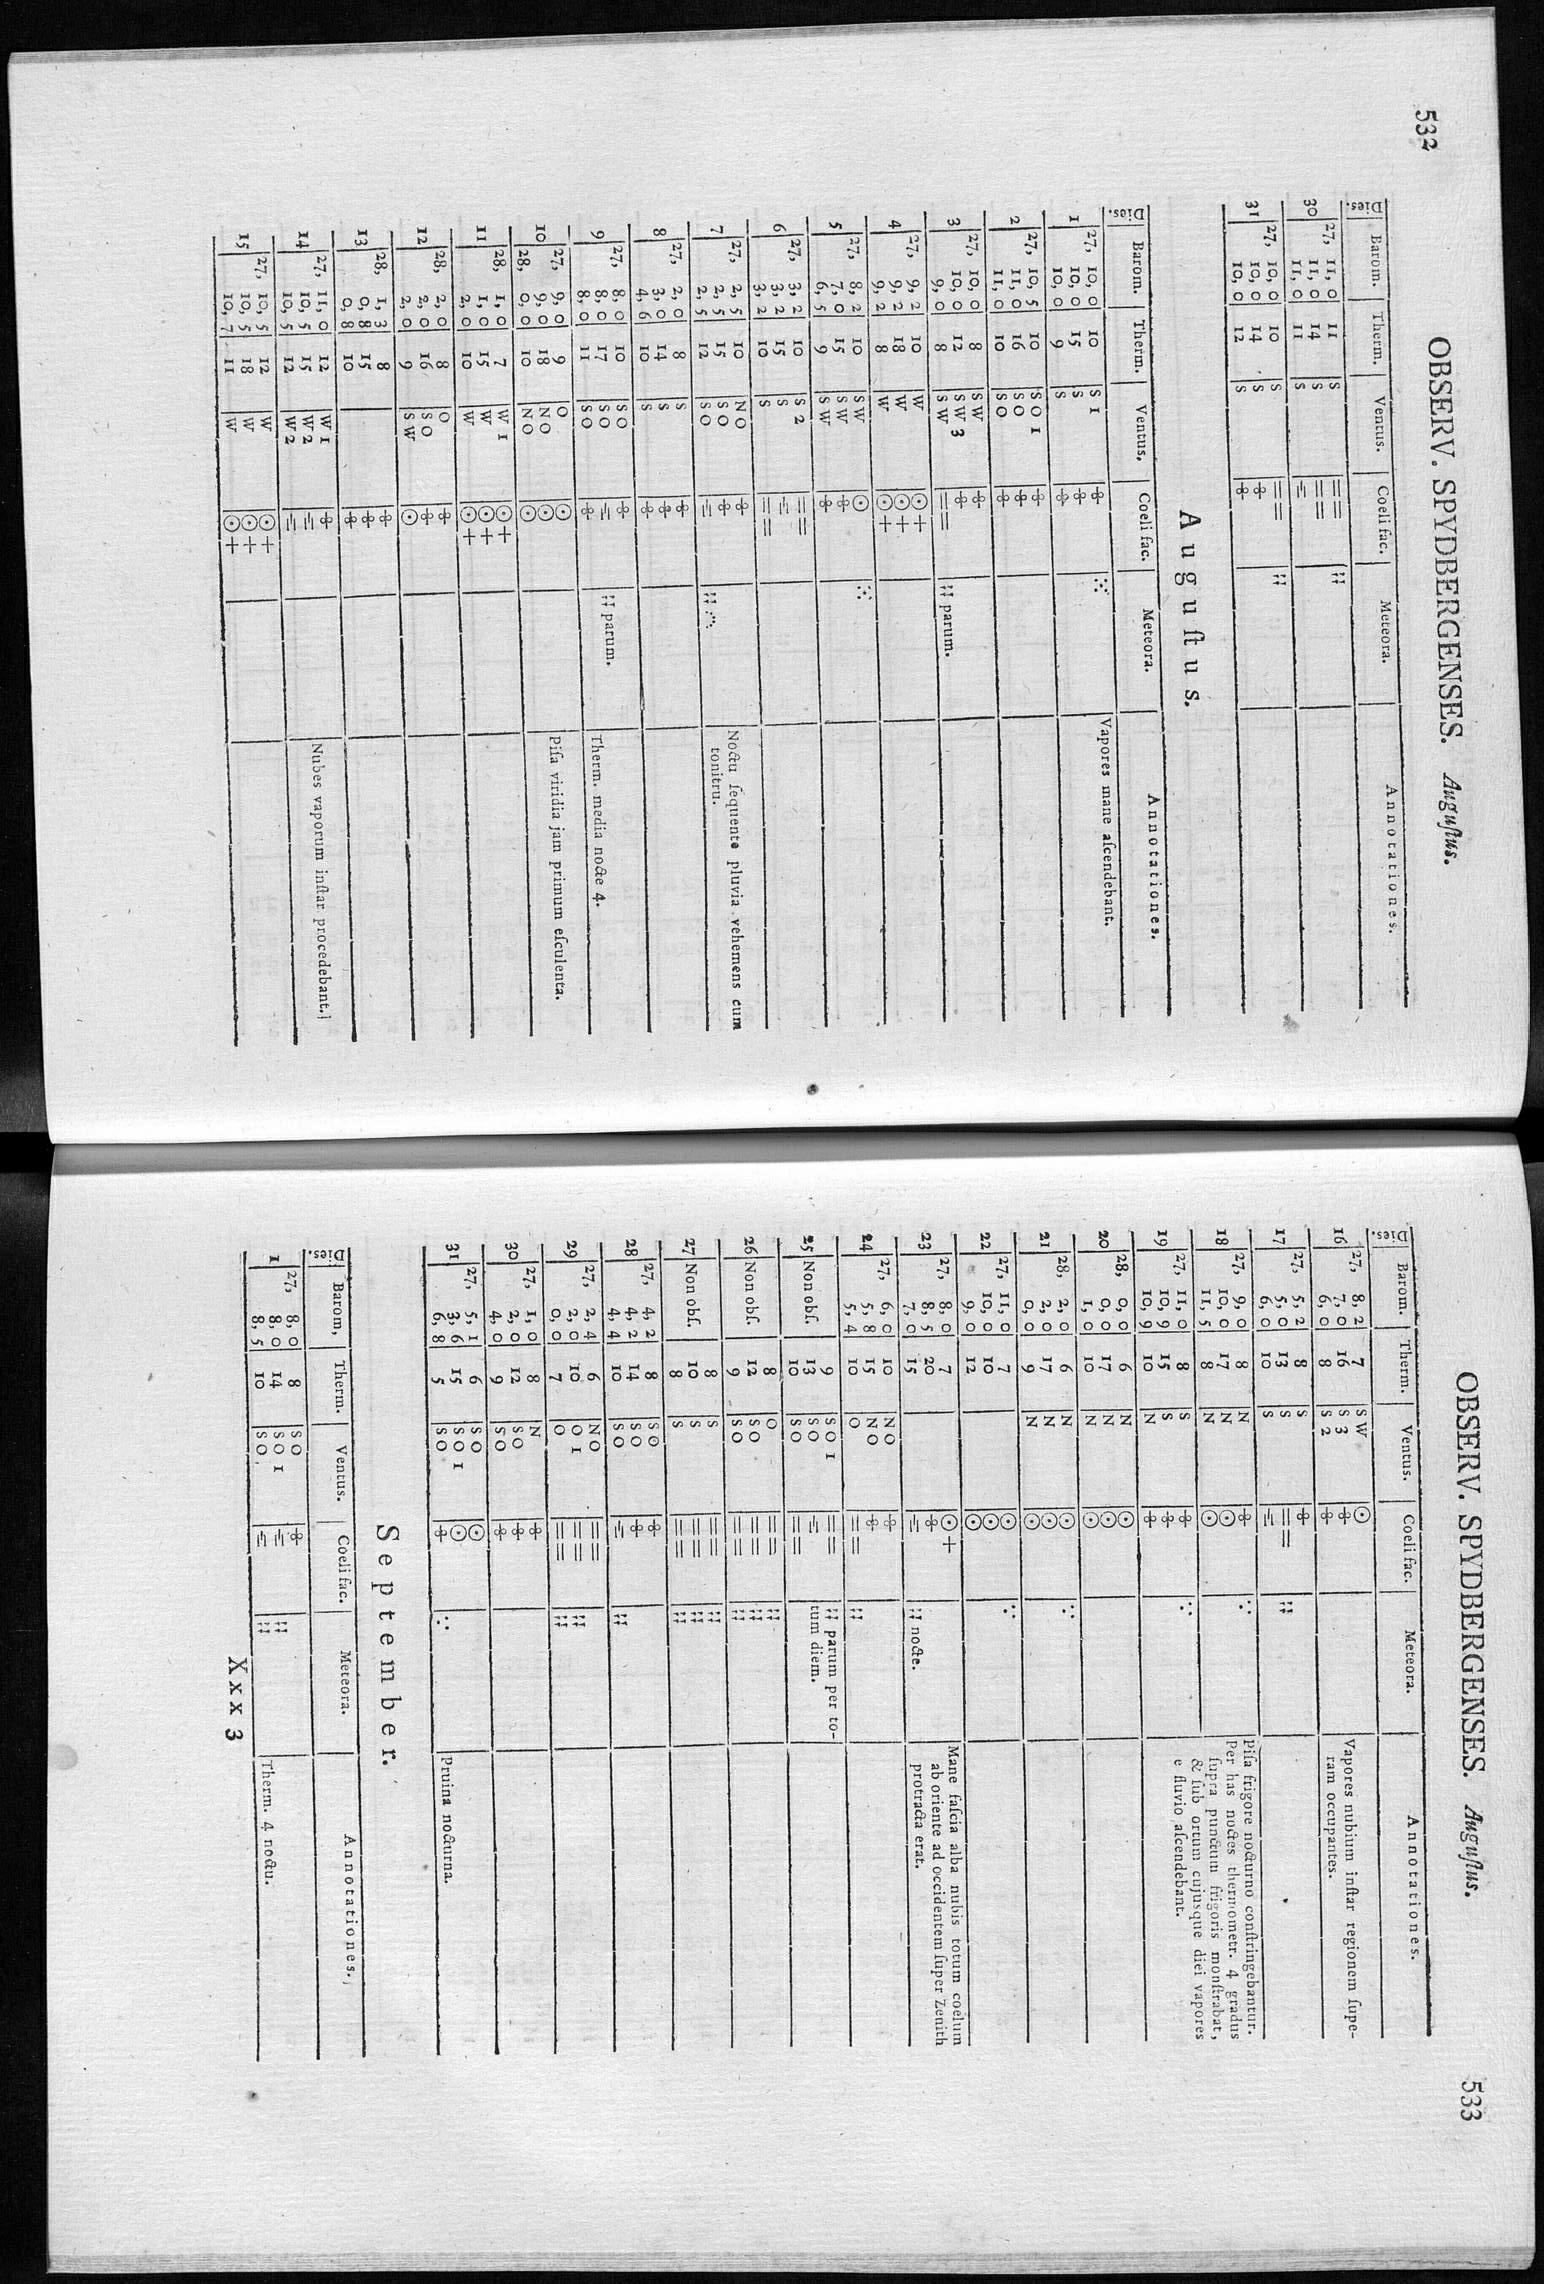 532
OBSERV. SPYDBERGENSES. Auguſtus.
Dies. Barom. Therm. Ventus. Coeli fac. Meteora. Annotationes.
30 27, 11, 0 11 S = = ⁝⁝
11, 0 14 S = =
11, 0 11 S
31 27, 10, 0 10 S = = ⁝⁝
10, 0 14 S
10, 0 12 S
Auguſtus.
Dies. Barom. Therm. Ventus. Coeli fac. Meteora. Annotationes.
1 27, 10, 0 10 S 1 Vapores mane aſcendebant.
10, 0 15 S
10, 0 9 S
2 27, 10, 5 10 S O 1
11, 0 16 S O
11, 0 10 S O
3 27, 10, 0 8 S W
10, 0 12 S W 3
9, 0 8 S W = = parum.
4 27, 9, 2 10 W ☉ +
9, 2 18 W ☉ +
9, 2 8 W ☉ +
5 27, 8, 2 10 S W ☉
7, 0 15 S W
6, 5 9 S W
6 27, 3, 2 10 S 2 = =
3, 2 15 S
3, 2 10 S = =
7 27, 2, 5 10 N O Noctu ſequente pluvia vehemens cum
2, 5 15 S O tonitru.
2, 5 12 S O
8 27, 2, 0 8 S
3, 0 14 S
4, 6 10 S
9 27, 8, 0 10 S O
8, 0 17 S O parum.
8, 0 11 S O Therm. media nocte 4.
10 27, 9, 0 9 O ☉
9, 0 18 N O ☉ Piſa viridia jam primum eſculenta.
28, 0, 0 10 N O ☉
11 28, 1, 0 7 W 1 ☉ +
1, 0 15 W ☉ +
2, 0 10 W ☉ +
12 28, 2, 0 8 O
2, 0 16 S O
2, 0 9 S W ☉
13 28, 1, 3 8
0, 8 15
0, 8 10
14 27, 11, 0 12 W 1
10, 5 15 W 2 Nubes vaporum inſtar procedebant.
10, 5 12 W 2
15 27, 10, 5 12 W ☉ +
10, 5 18 W ☉ +
10, 7 11 W ☉ +
OBSERV. SPYDBERGENSES. Auguſtus. 533
Dies. Barom. Therm. Ventus. Coeli fac. Meteora. Annotationes.
16 27, 8, 2 7 S W ☉ Vapores nubium inſtar regionem ſupe-
7, 0 16 S 3 ram occupantes.
6, 0 8 S 2
17 27, 5, 2 8 S
5, 0 13 S = = ⁝⁝
6, 0 10 S
18 27, 9, 0 8 N Piſa frigore nocturno conſtringebantur.
10, 0 17 N ☉ Per has noctes thermometr. 4 gradus
11, 5 8 N ☉ ſupra punctum frigoris monſtrabat,
19 27, 11, 0 8 S & ſub ortum cujusque diei vapores
10, 9 15 S e fluvio aſcendebant.
10, 9 10 N
20 28, 0, 0 6 N ☉
0, 0 17 N ☉
1, 0 10 N ☉
21 28, 2, 0 6 N ☉
2, 0 17 N ☉
0, 0 9 N ☉
22 27, 11, 0 7 ☉
10, 0 10 ☉
9, 0 12 ☉
23 27, 8, 0 7 ☉ + Mane faſcia alba nubis totum coelum
8, 5 20 ab oriente ad occidentem ſuper Zenith
7, 0 15 nocte. protracta erat.
24 27, 6, 0 10 N O
5, 8 15 N O
5, 4 10 O = = ⁝⁝
25 Non obſ. 9 S O 1 = = parum per to-
13 S O tum diem.
10 S O = =
26 Non obſ. 8 O = = ⁝⁝
12 S O = = ⁝⁝
9 S O = = ⁝⁝
27 Non obſ. 8 S = = ⁝⁝
10 S = = ⁝⁝
8 S = = ⁝⁝
28 27, 4, 2 8 S O
4, 2 14 S O
4, 4 10 S O ⁝⁝
29 27, 2, 4 6 N O = =
2, 0 10 O 1 = = ⁝⁝
0, 0 7 O = = ⁝⁝
30 27, 1, 0 8 N
2, 0 12 S O
4, 0 9 S O
31 27, 5, 1 6 S O ☉
3, 6 15 S O 1 ☉
6, 8 5 S O Pruina nocturna.
September.
Dies. Barom. Therm. Ventus. Coeli fac. Meteora. Annotationes.
1 27, 8, 0 8 S O
8, 0 14 S O 1 ⁝⁝
8, 5 10 S O ⁝⁝ Therm. 4 noctu.
X x x 3